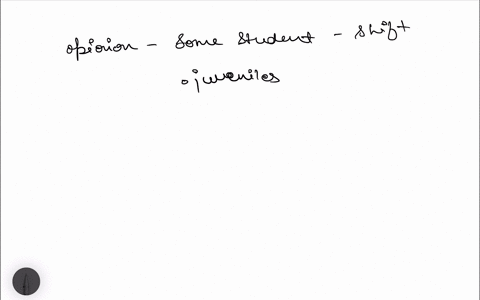 opinion - Some Student - shift
• juveniles